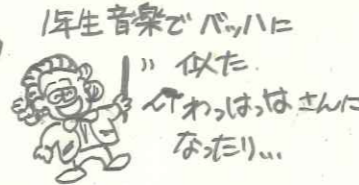 1年生 音楽で バッハに
似た
わっはっはさんに
なったり...